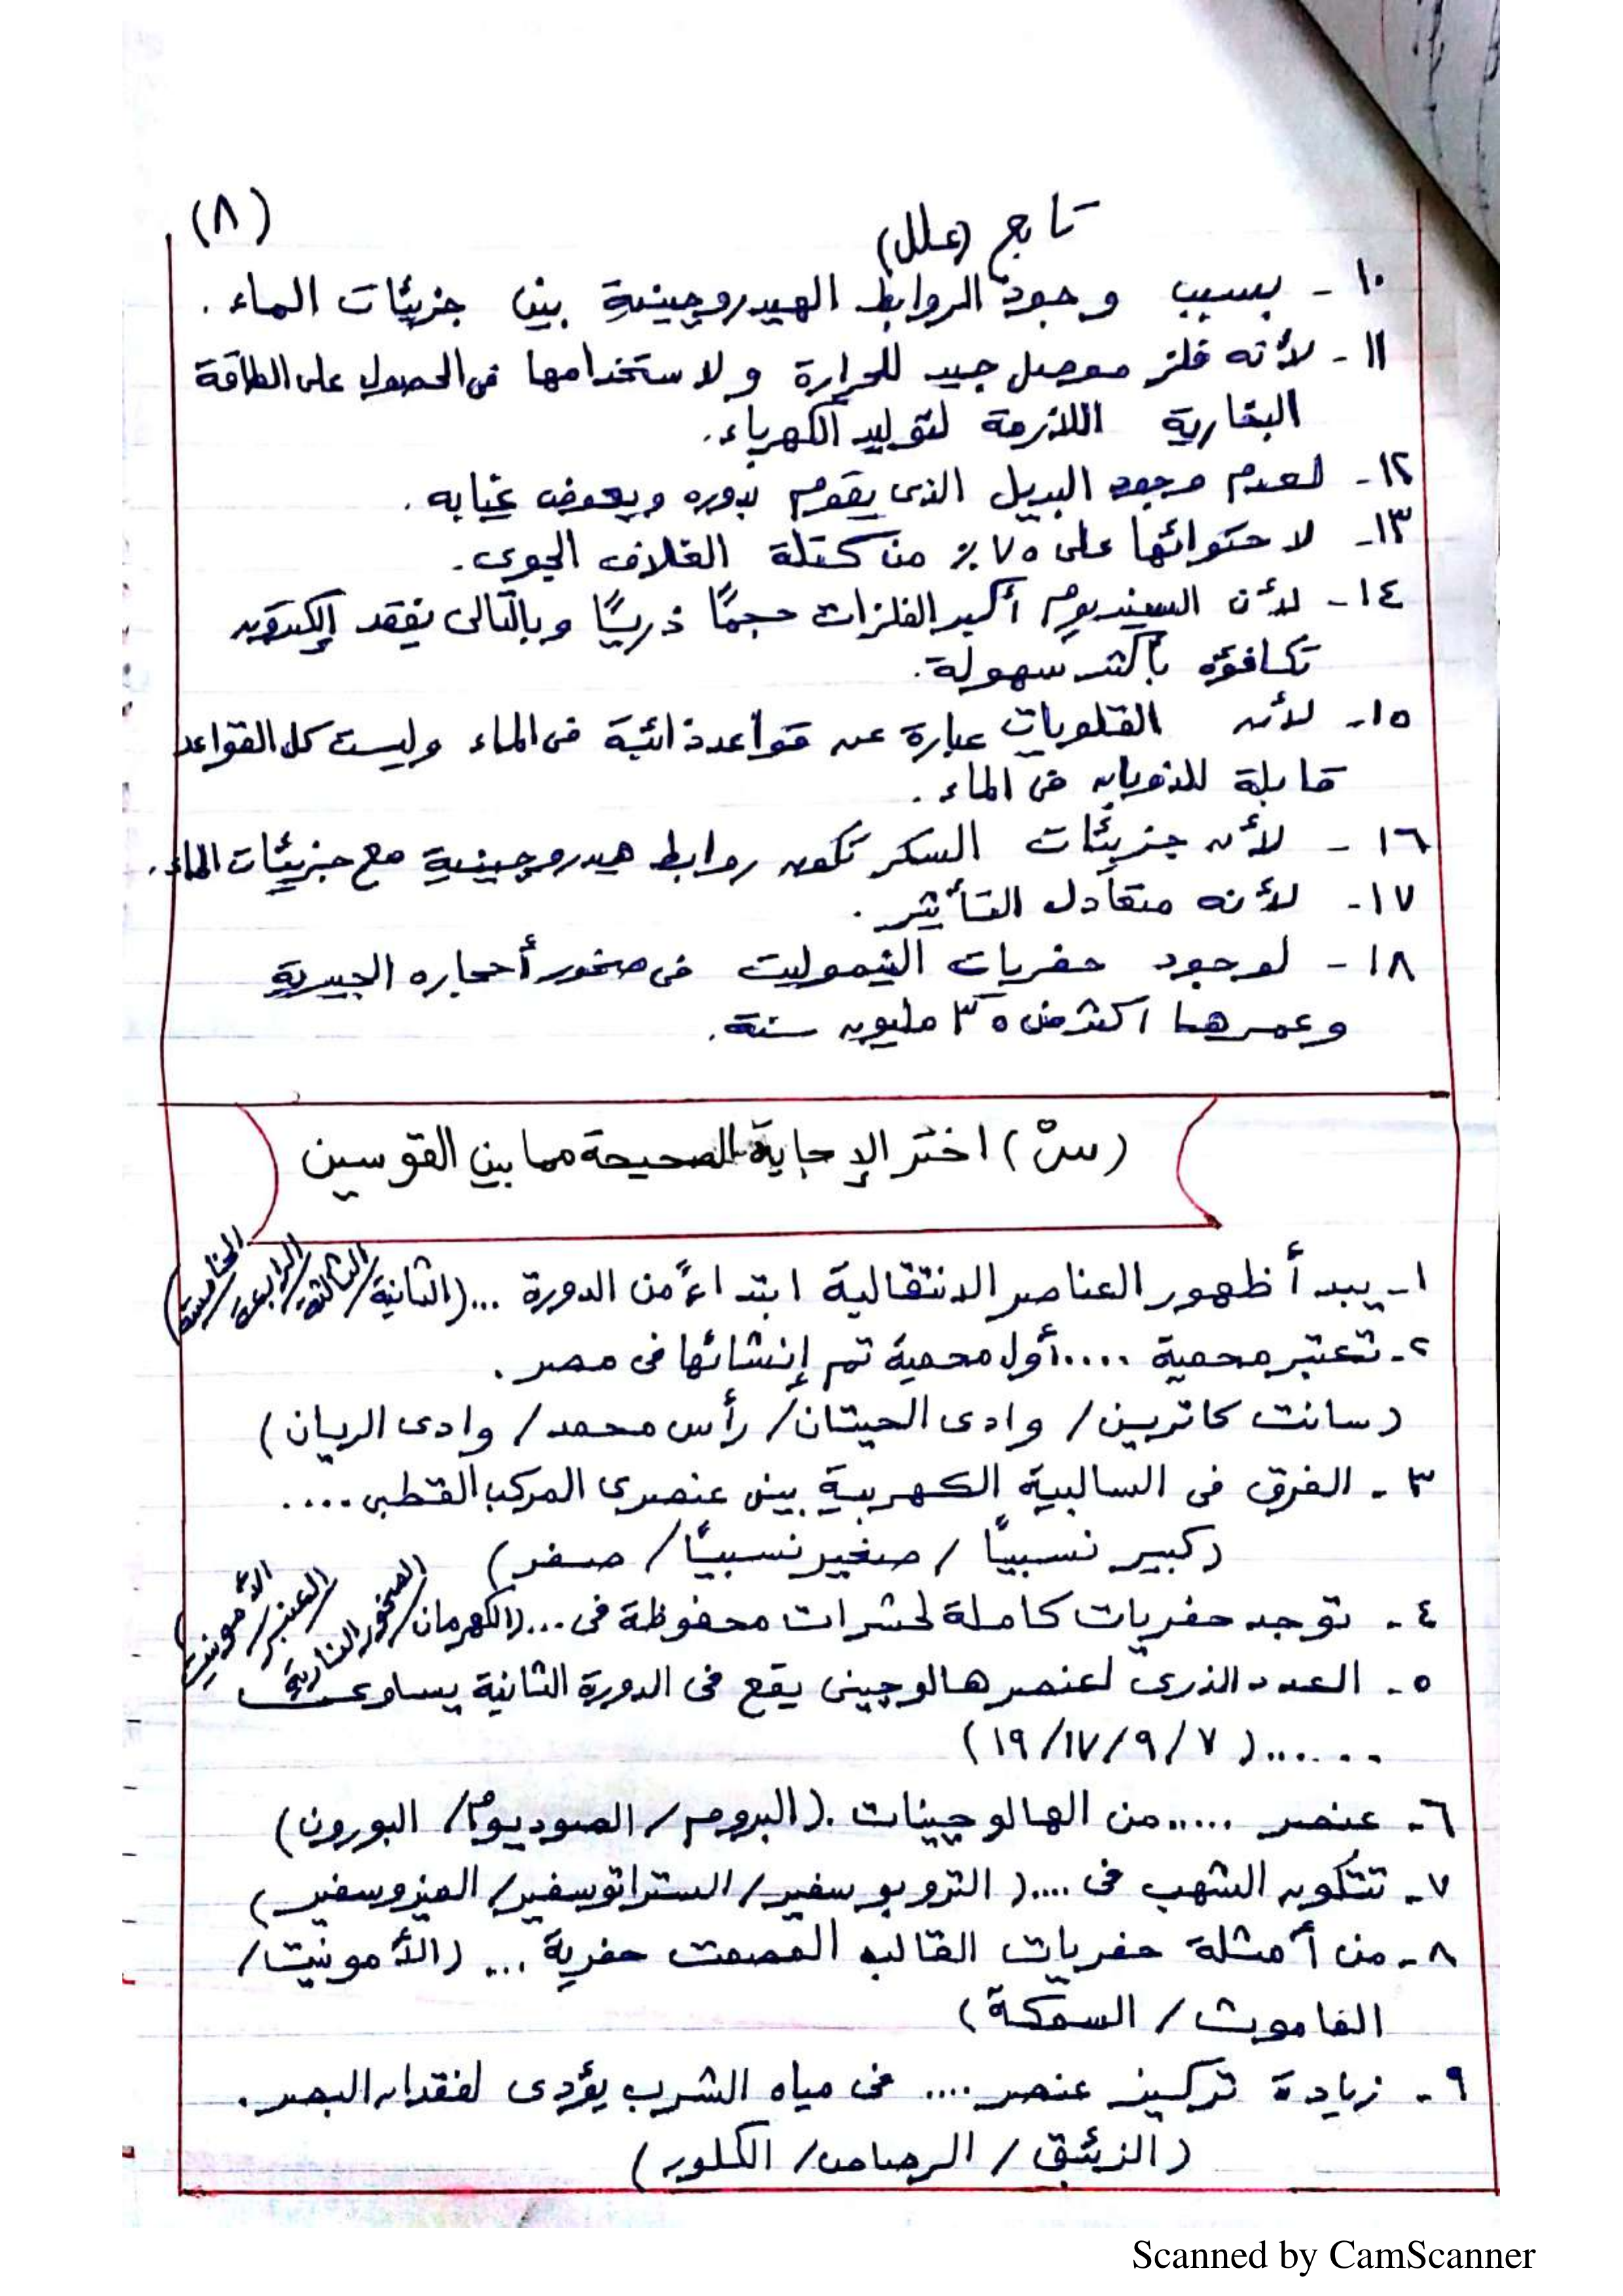 (٨)
تابع (علل)
١٠- بسبب وجود الروابط الهيدروجينية بين جزيئات الماء.
١١- لأنه فلز موصل جيد للحرارة ولاستخدامها فى الحصول على الطاقة
البخارية اللازمة لتوليد الكهرباء.
١٢- لعدم وجود البديل الذى يقوم بدوره ويعوض غيابه.
١٣- لاحتوائها على ٧٥٪ من كتلة الغلاف الجوى.
١٤- لأن السيزيوم أكبر الفلزات حجمًا ذريًا وبالتالى يفقد إلكترون
تكافؤه بأكثر سهولة.
١٥- لأن القلويات عبارة عن قواعد ذائبة فى الماء وليست كل القواعد
قابلة للذوبان فى الماء.
١٦- لأن جزيئات السكر تكون روابط هيدروجينية مع جزيئات الماء.
١٧- لأنه متعادل التأثير.
١٨- لوجود حفريات النيموليت فى صخور أحجاره الجيرية
وعمرها أكثر من ٣٥ مليون سنة.
(س٣) اختر الإجابة الصحيحة مما بين القوسين
١- يبدأ ظهور العناصر الانتقالية ابتداءً من الدورة ...(الثانية/الثالثة/الرابعة/الخامسة)
٢- تعتبر محمية .... أول محمية تم إنشائها فى مصر.
(سانت كاترين/ وادى الحيتان/ رأس محمد/ وادى الريان)
٣- الفرق فى السالبية الكهربية بين عنصرى المركب القطبى ....
(كبير نسبيًا / صغير نسبيًا/ صفر)
٤- توجد حفريات كاملة لحشرات محفوظة فى ...(الكهرمان/الصخور النارية/العنبر/الأمونيت)
٥- العدد الذرى لعنصر هالوجينى يقع فى الدورة الثانية يساوى
......(٧/٩/١٧/١٩)
٦- عنصر ..... من الهالوجينات.(البروم/ الصوديوم/ البورون)
٧- تتكون الشهب فى ....(التروبوسفير/الستراتوسفير/الميزوسفير)
٨- من أمثلة حفريات القالب المصمت حفرية ... (الأمونيت/
الماموث/ السمكة)
٩- زيادة تركيز عنصر .... فى مياه الشرب يؤدى لفقدان البصر.
(الزئبق/ الرصاص/ الكلور)
Scanned by CamScanner